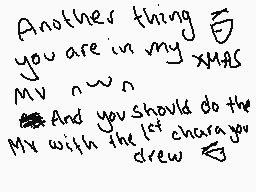 Another thing
you are in my XMAS
MV nwn
And you should do the
MV with the 1st chara you
drew